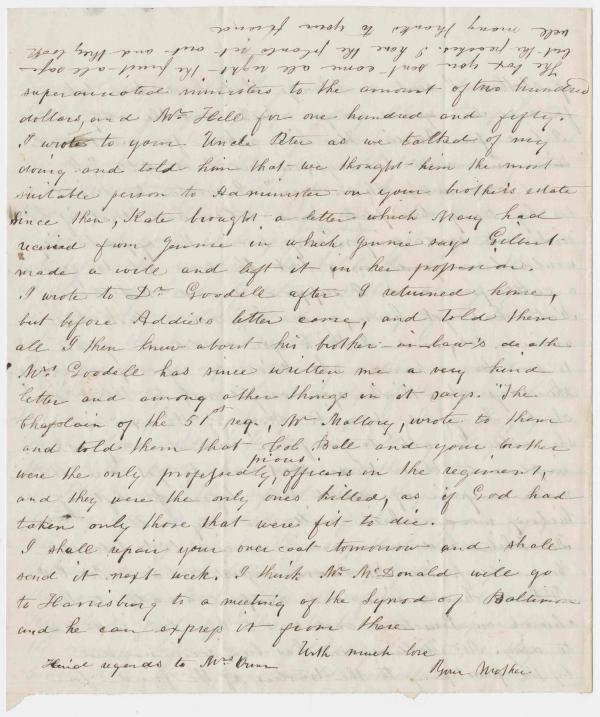 superannuated ministers to the amount of two hundred
dollars, and Mr Hill for one hundred and fifty.
I wrote to your Uncle Peter as we talked of my
doing and told him that we thought him the most
suitable person to Administer on your brother's estate
since then, Kate brought a letter which Mary had
received from Jennie in which Jennie says Gilbert
made a will and left it in her possession.
I wrote to Dr Goodell after I returned home,
but before Addie's letter came, and told them
all I then knew about his brother-in-law's death
Mrs Goodell has since written me a very kind
letter and among other things in it says. "The
Chaplain of the 51st reg., Mr Mallory, wrote to them
and told them that Col. Bell and your brother
were the only professedly pious officers in the regiment,
and they were the only ones killed, as if God had
taken only those that were fit to die.
I shall repair your over coat tomorrow and shall
send it next week. I think Mr McDonald will go
to Harrisburg to a meeting of the Synod of Baltimore
and he can express it from there
With much love
Your Mother
Kind regards to Mrs
The box you sent come all right the fruit all safe
but the peaches. I have the plants set out and they look
well many thanks to your friend